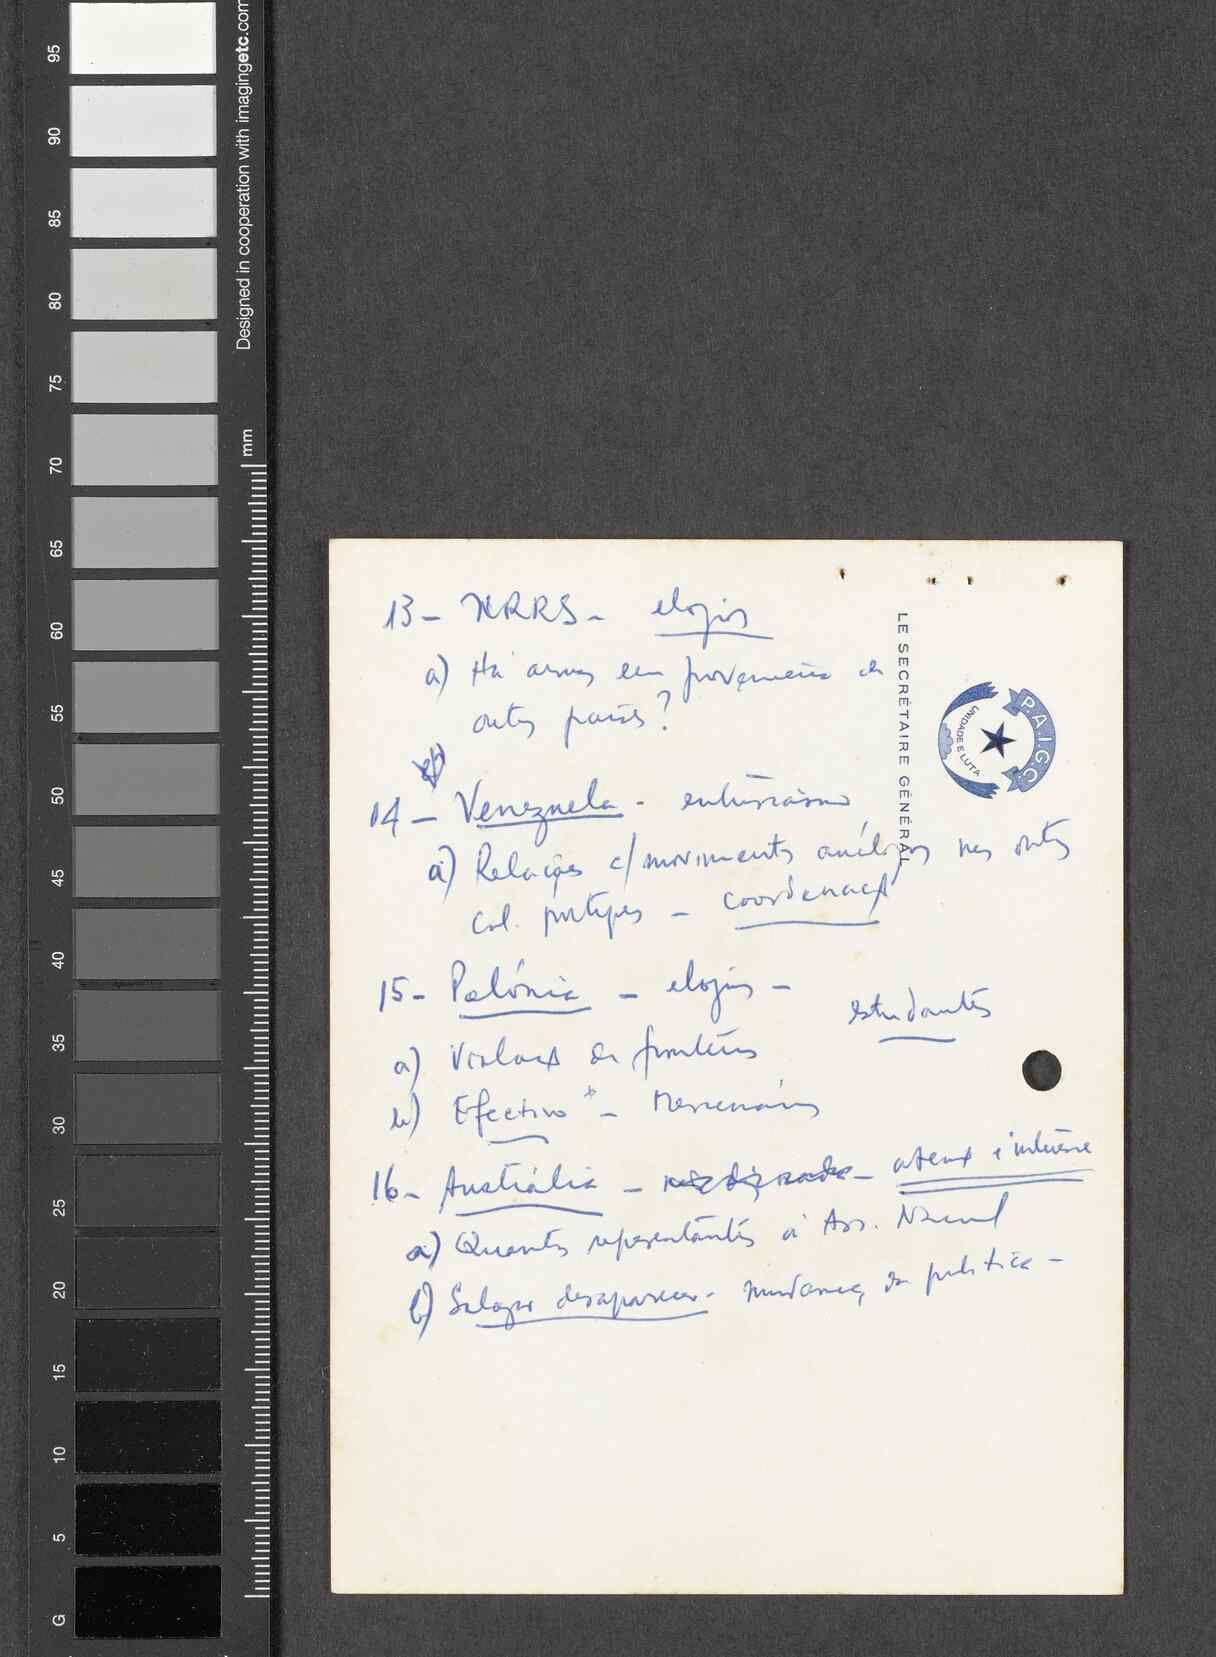 Designed in cooperation with imagingetc.com
mm
95
90
85
80
75
70
65
60
55
50
45
40
35
30
25
20
15
10
5
G
LE SECRÉTAIRE GÉNÉRAL
P.A.I.G.C.
UNIDADE E LUTA
13 - URRS - elogios
a) Há armas em proveniência de
outros países?
14 - Venezuela - entusiasmo
a) Relações c/ movimentos análogos nas outras
col. portuguesas - coordenação
15 - Polónia - elogios -
estudantes
a) Violação de fronteiras
b) Efectivos - Mercenários
16 - Austrália - atenção e interesse
a) Quantos representantes à Ass. Nacional
b) Salazar desaparecer - mudança de política -